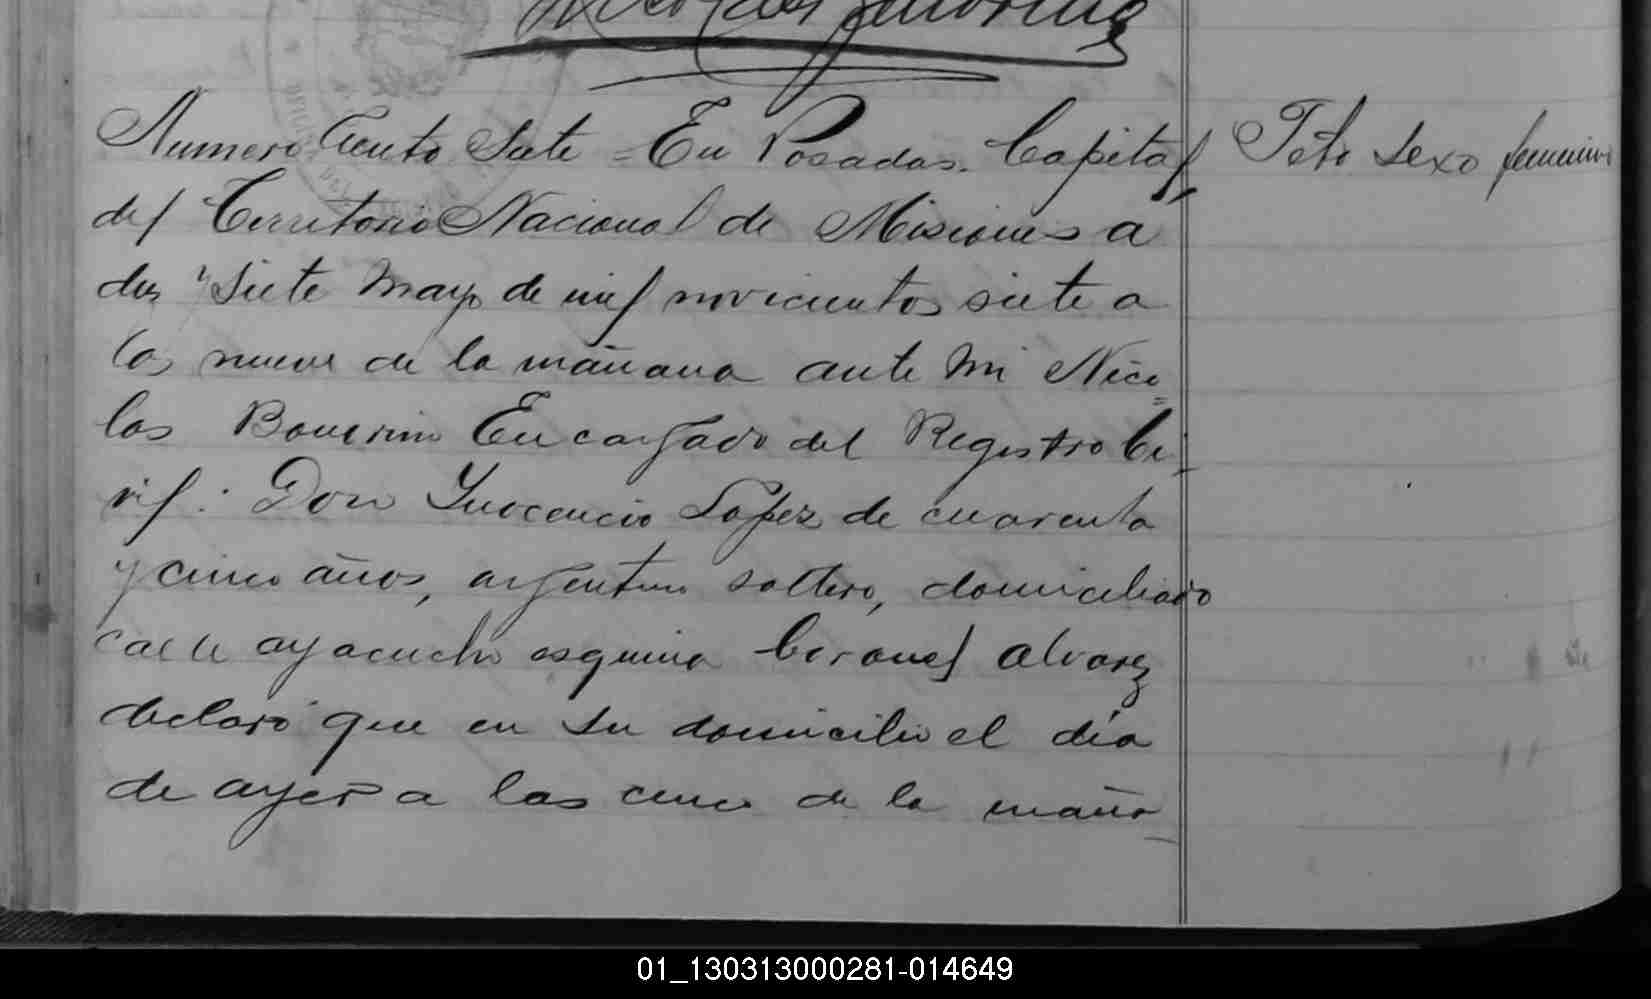 Numero Ciento Siete = En Posadas. Capital
del Territorio Nacional de Misiones a
diez y siete Mayo de mil novicientos siete a
las nueve de la mañana ante Mi Nico=
las Bouerini Encargado del Registro Ci-
vil: Don Inocencio Lopez de cuarenta
y cinco años, argentino soltero, domiciliado
calle ayacucho esquina Coronel alvarez
declaró que en su domicilio el dia
de ayer a las cinco de la maña
Feto sexo femenino
01_130313000281-014649